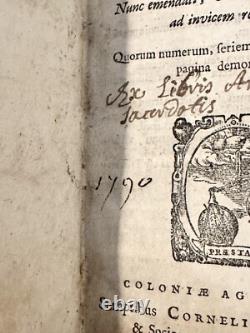 Nunc emendati,
ad invicem re
Quorum numerum, seriem
pagina demon
Ex Libris
Sacerdotis
1790
PRÆSTA
COLONIÆ AG
CORNELI
& Socio